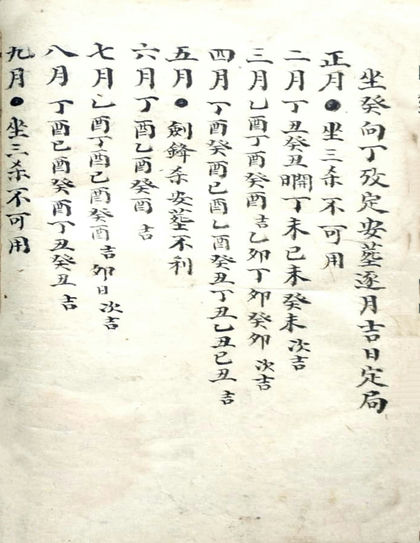 坐癸向丁攷定安葬逐月吉日定局
正月●坐三杀不可用
二月丁丑癸丑 丁未己未癸未次吉
三月乙酉丁酉癸酉吉乙卯丁卯癸卯次吉
四月丁酉癸酉己酉乙酉癸丑丁丑乙丑己丑吉
五月●劍鋒杀安葬不利
六月丁酉乙酉癸酉吉
七月乙酉丁酉己酉癸酉吉卯日次吉
八月丁酉己酉癸酉丁丑癸丑吉
九月●坐三杀不可用